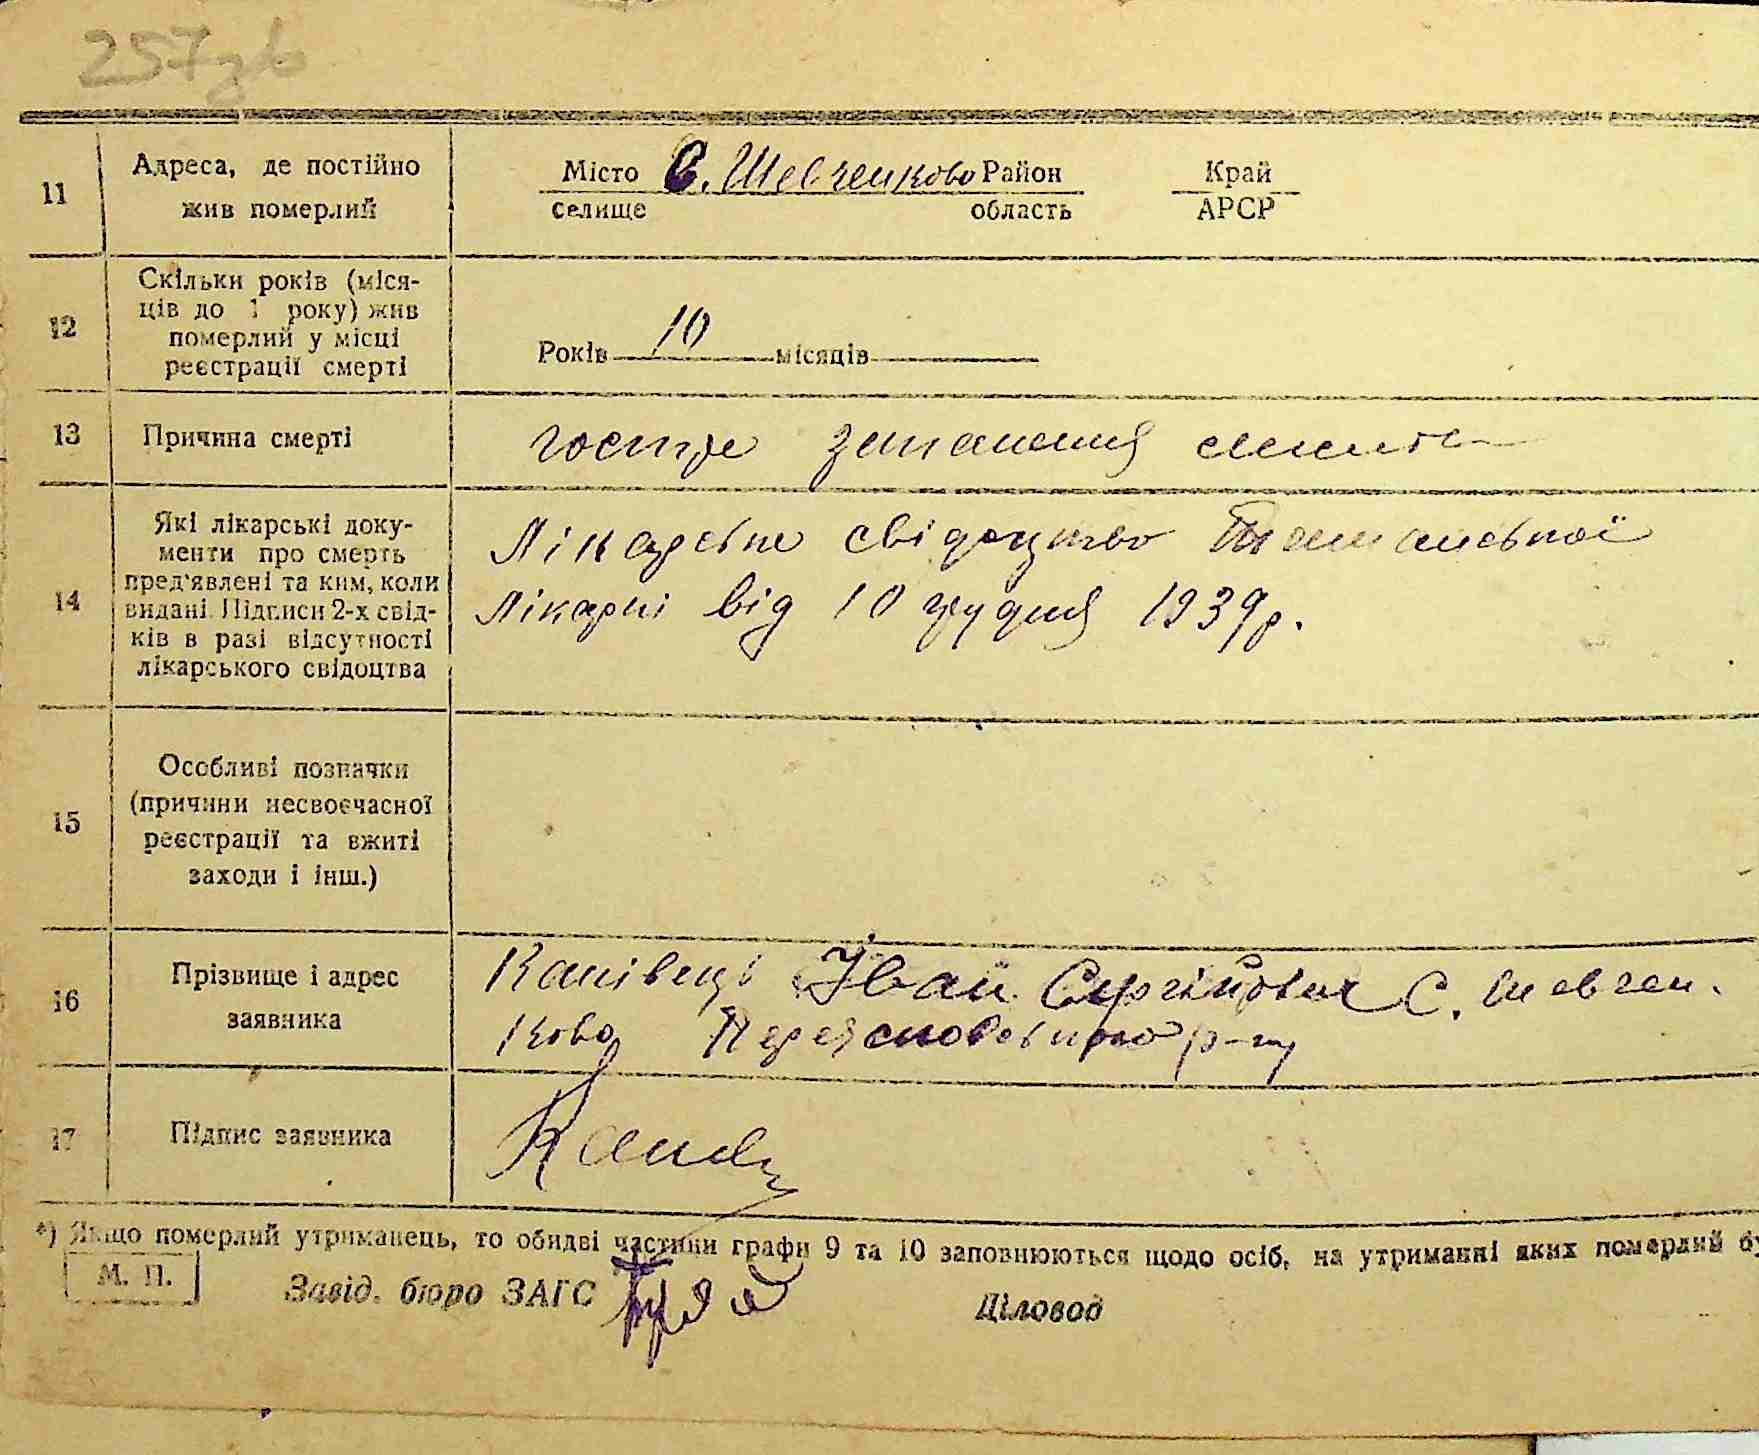 257 зв
11
Адреса, де постійно
жив померлий
Місто С. Шевченково Район Край
селище область АРСР
12
Скільки років (міся-
ців до 1 року) жив
померлий у місці
реєстрації смерті
Років 10 місяців
13
Причина смерті
гостре запалення
14
Які лікарські доку-
менти про смерть
пред'явлені та ким, коли
видані. Підписи 2-х свід-
ків в разі відсутності
лікарського свідоцтва
Лікарське свідоцтво Ташанської
лікарні від 10 грудня 1939р.
15
Особливі позначки
(причини несвоєчасної
реєстрації та вжиті
заходи і інш.)
16
Прізвище і адрес
заявника
Канівець Іван Сергійович С. Шевчен.
ково Переяславського р-ну
17
Підпис заявника
*) Якщо померлий утриманець, то обидві частини графи 9 та 10 заповнюються щодо осіб, на утриманні яких померлий бу
М. П.
Завід. бюро ЗАГС
Діловод